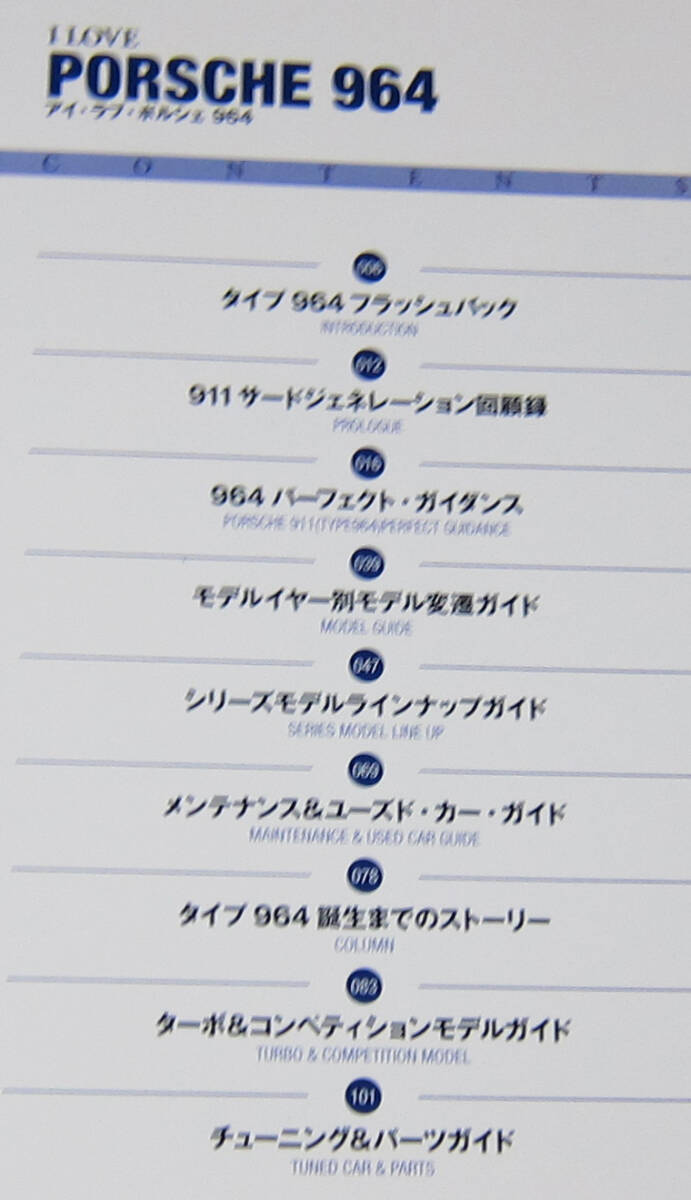 I LOVE
PORSCHE 964
アイ・ラブ・ポルシェ 964
CONTENTS
006
タイプ 964 フラッシュバック
INTRODUCTION
012
911 サードジェネレーション回顧録
PROLOGUE
016
964 パーフェクト・ガイダンス
PORSCHE 911(TYPE964)PERFECT GUIDANCE
039
モデルイヤー別モデル変遷ガイド
MODEL GUIDE
047
シリーズモデルラインナップガイド
SERIES MODEL LINE UP
069
メンテナンス&ユーズド・カー・ガイド
MAINTENANCE & USED CAR GUIDE
078
タイプ 964 誕生までのストーリー
COLUMN
083
ターボ&コンペティションモデルガイド
TURBO & COMPETITION MODEL
101
チューニング&パーツガイド
TUNED CAR & PARTS